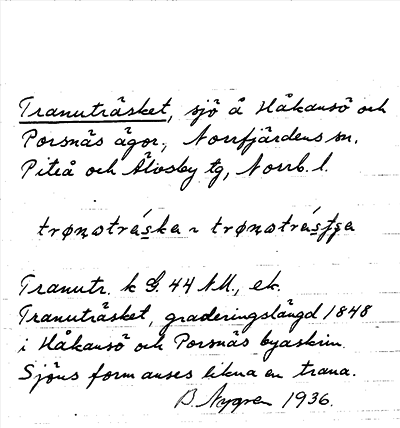 Tranuträsket, sjö å Håkansö och
Porsnäs ägor, Norrfjärdens sn,
Piteå och Älvsby tg, Norrb. l.
trønstráska ~ trønstrástsa
Tranutr. k G. 44 NV., ek.
Tranuträsket, graderingslängd 1848
i Håkansö och Porsnäs byaskrin.
Sjöns form anses likna en trana.
B. Nygren 1936.